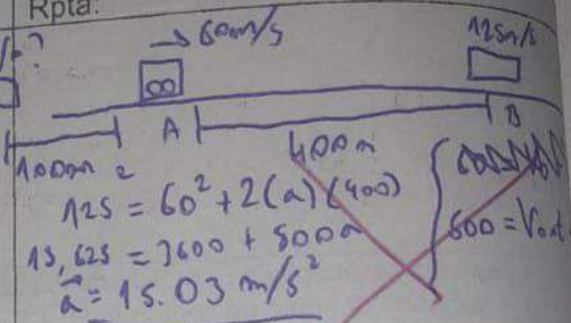 Rpta:
→ 60m/s
125m/s
A
B
100m
400m
125² = 60² + 2(a)(400)
15,625 = 3600 + 800a
a = 15.03 m/s²